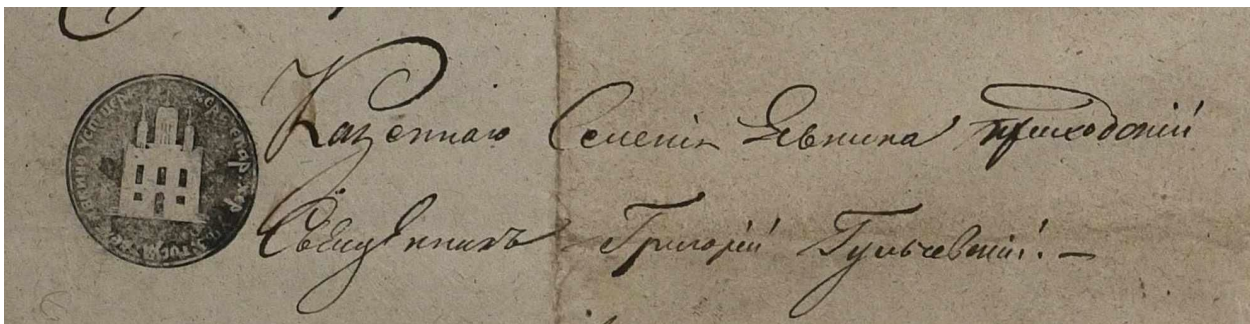 Казеннаго Селенія Явкина приходскій
Священникъ Григорій Гульчевскій. —